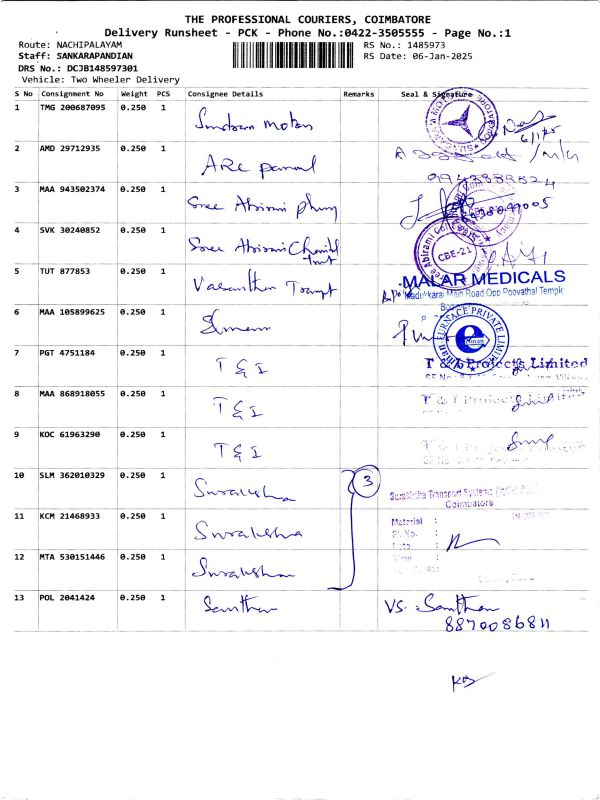 THE PROFESSIONAL COURIERS, COIMBATORE
Delivery Runsheet - PCK - Phone No.:0422-3505555 - Page No.:1
Route: NACHIPALAYAM RS No.: 1485973
Staff: SANKARAPANDIAN RS Date: 06-Jan-2025
DRS No.: DCJB148597301
Vehicle: Two Wheeler Delivery
S No Consignment No Weight PCS Consignee Details Remarks Seal & Signature
1 TMG 200687095 0.250 1
2 AMD 29712935 0.250 1 ARC
3 MAA 943502374 0.250 1 Sree Abirami
4 SVK 30240852 0.250 1 Sree Abirami
CBE-21
5 TUT 877853 0.250 1 Vasantham
MALAR MEDICALS
Madukkarai Main Road, Opp Poovathal Temple
6 MAA 105899625 0.250 1
7 PGT 4751184 0.250 1 T & I
T & I Projects Limited
8 MAA 868918055 0.250 1 T & I
T & I Projects
9 KOC 61963290 0.250 1 T & I
10 SLM 362010329 0.250 1 Suraksha 3
Suraksha Transport Systems
Coimbatore
11 KCM 21468933 0.250 1 Suraksha
Material :
12 MTA 530151446 0.250 1 Suraksha
13 POL 2041424 0.250 1 Santhan VS. Santhan
8870086811